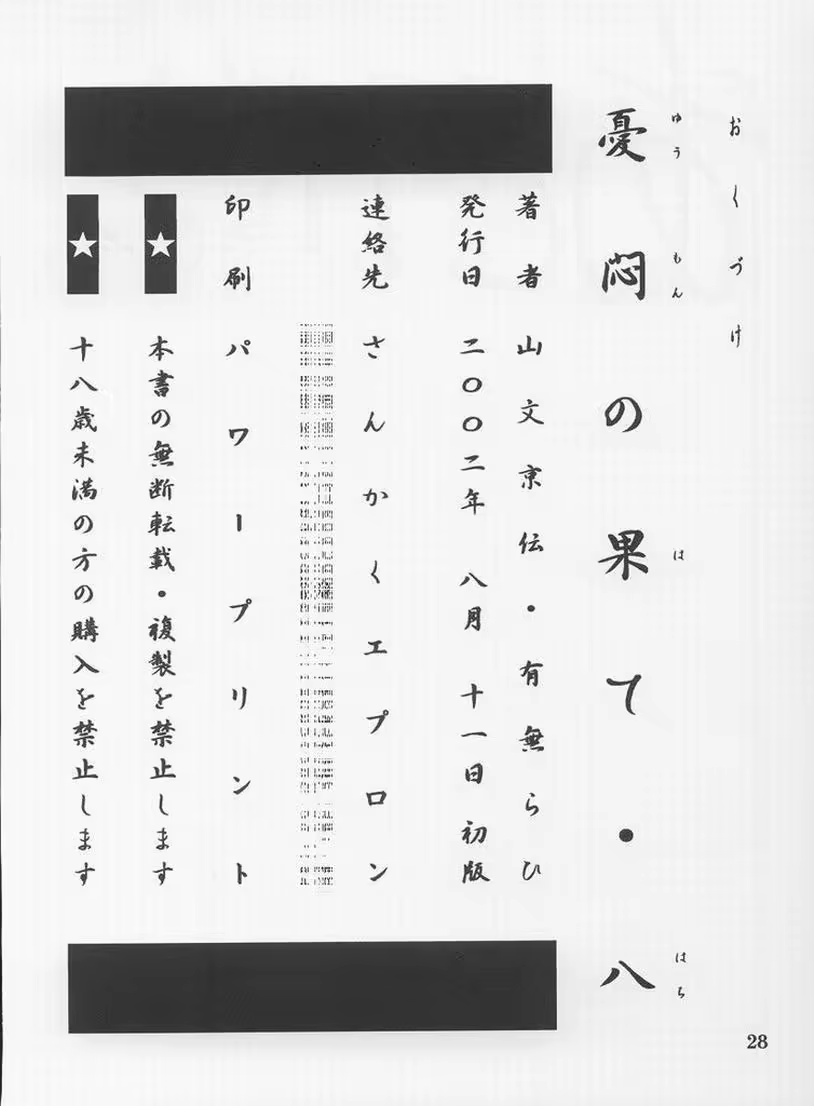 おくづけ
憂悶の果て・八
ゆうもん は はち
著者 山文京伝・有無らひ
発行日 二〇〇二年 八月 十一日 初版
連絡先 さんかくエプロン
印刷 パワープリント
★ 本書の無断転載・複製を禁止します
★ 十八歳未満の方の購入を禁止します
28